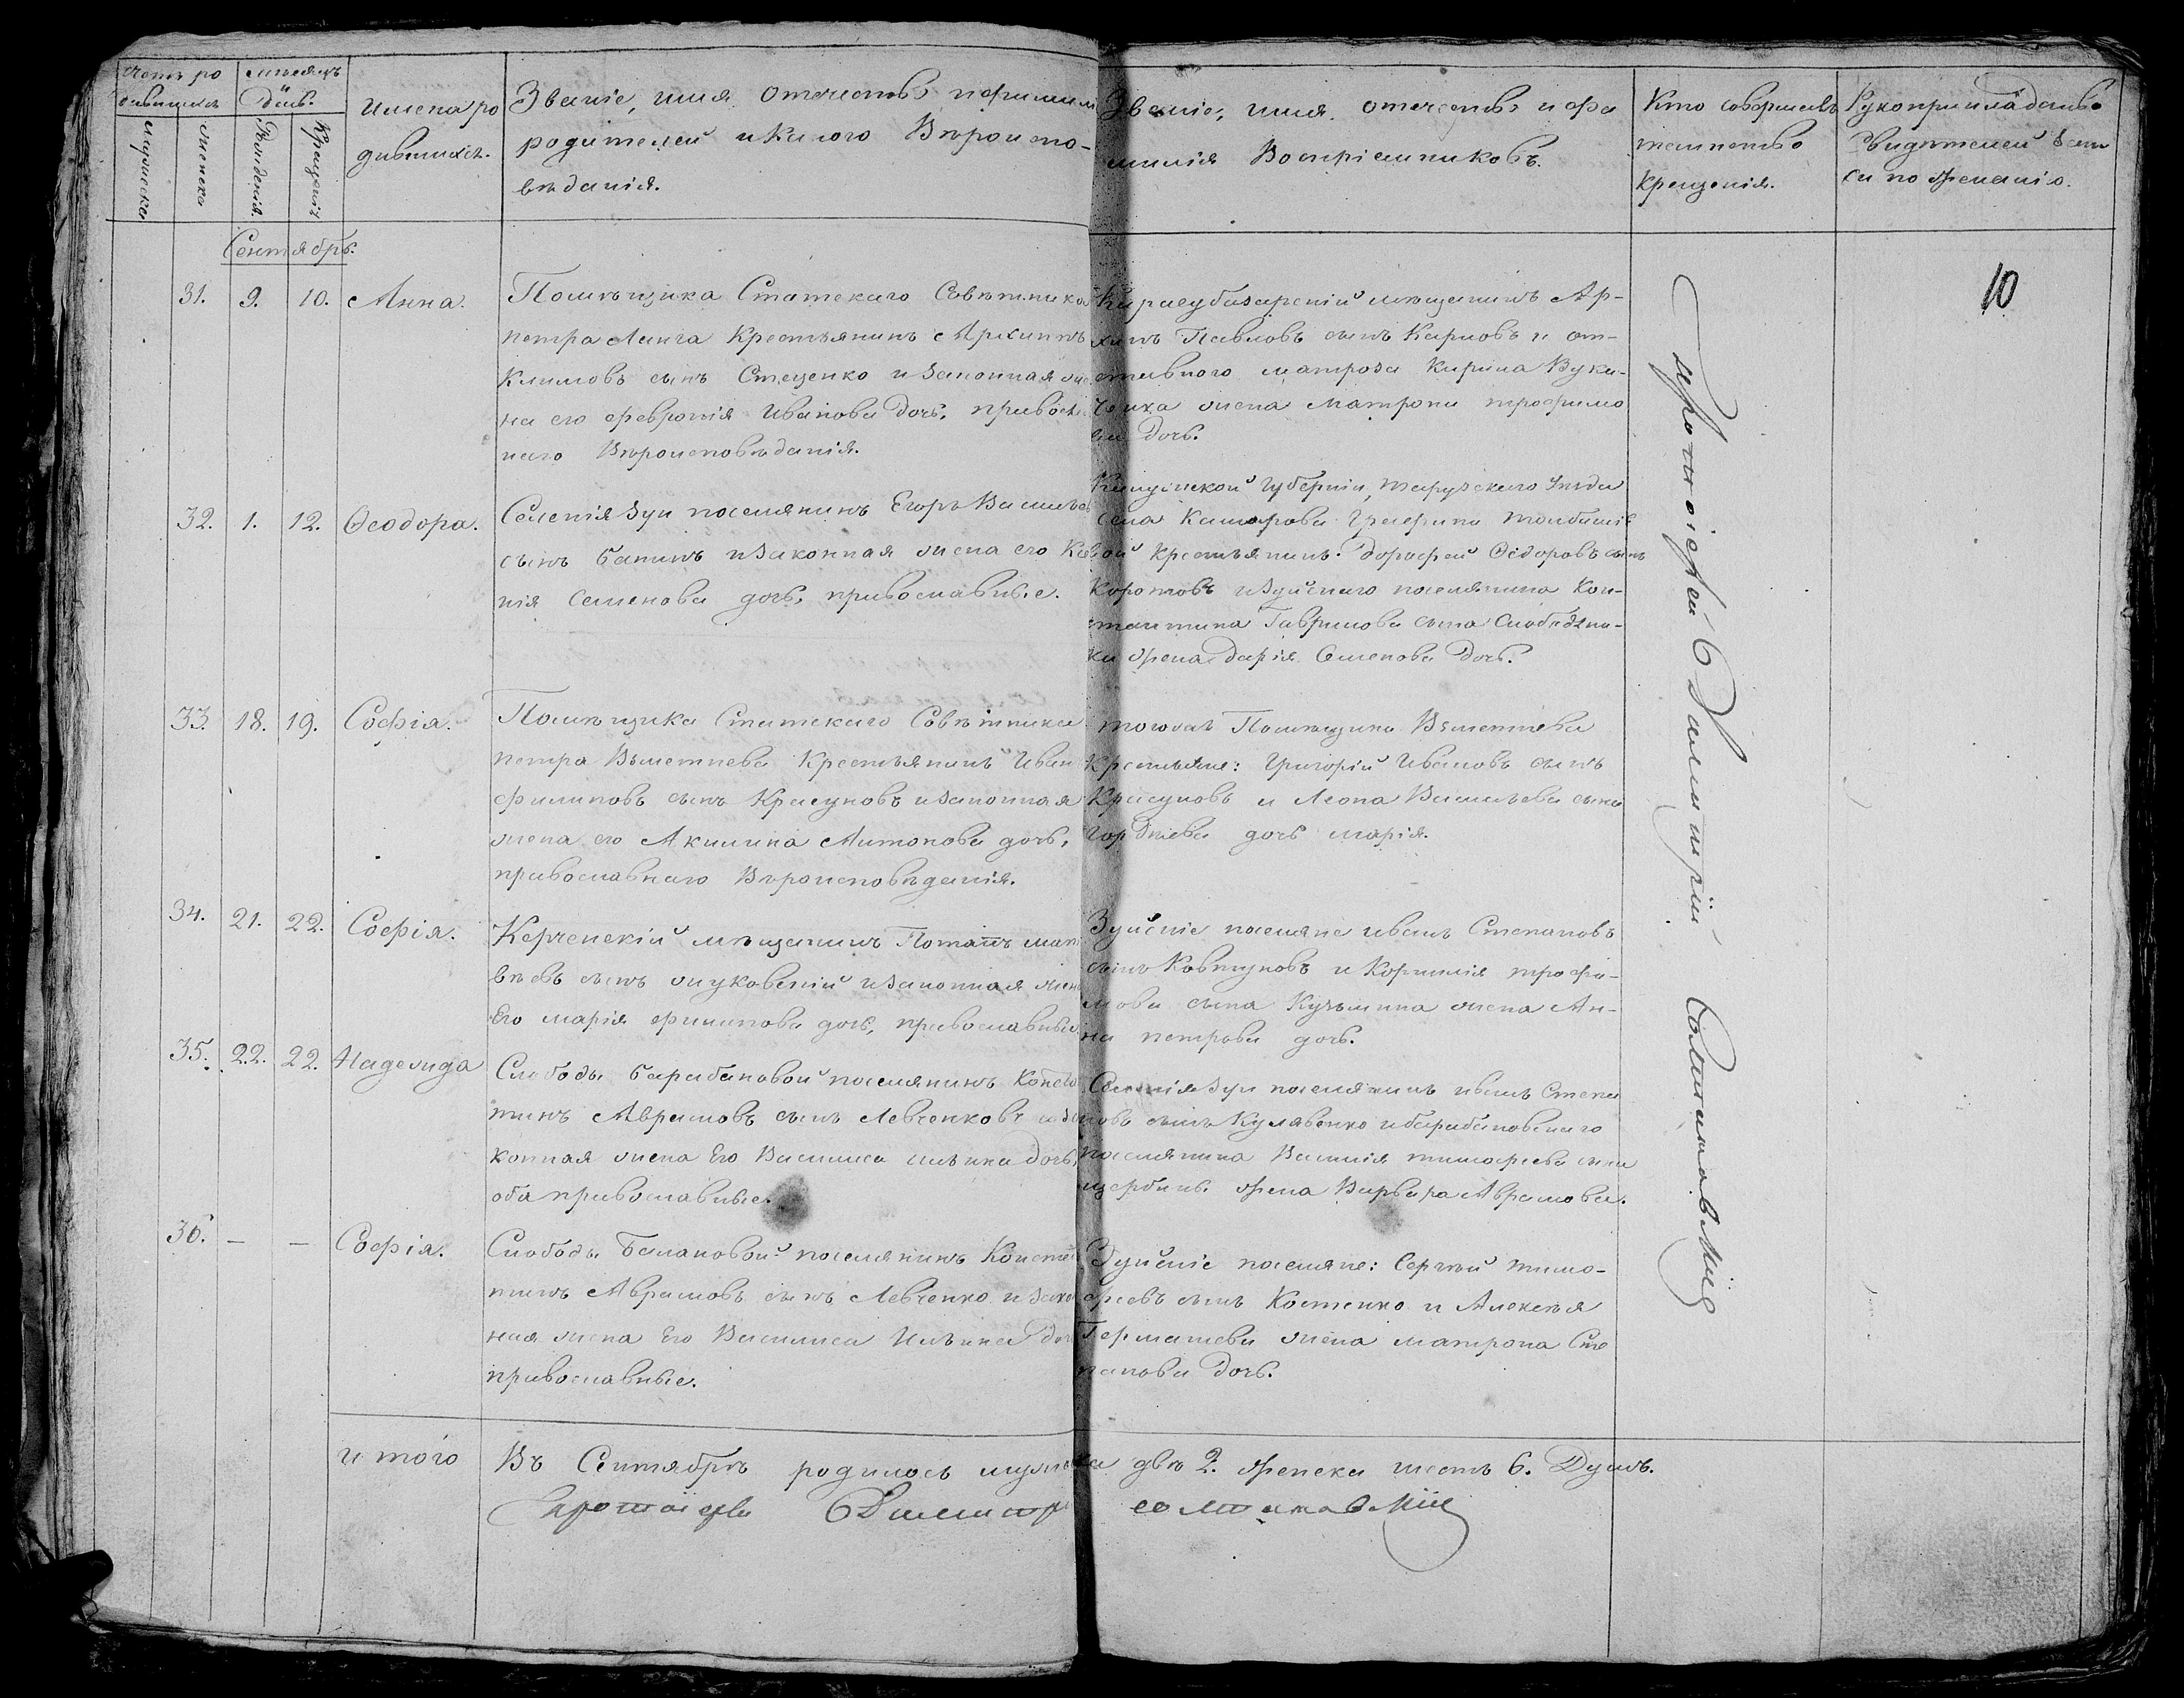 Счетъ ро
дившихся
мѣсяцъ
День.
Мужеска
Женска
Рожденія.
Крещенія
Имена ро
дившихся.
Званіе, имя отечество и фамилія
родителей и какого Вѣроиспо-
вѣданія.
Званіе, имя отечество и фа
милія Воспріемниковъ.
Кто совершалъ
таинство
крещенія.
Рукоприкладство
Свидѣтелей запи
си по желанію.
10
Сентябрь.
31. 9. 10. Анна.
Помѣщика Статскаго Совѣтника
петра Ланга Крестьянинъ Архиппъ
Климовъ сынъ Стеценко и законная же
на его феврония Иванова дочь, православ
наго Вѣроисповѣданія.
Карасубазарскій мѣщанинъ Ар-
хипъ Павловъ сынъ Карповъ и от-
ставного матроза Кирила
жена матрона трофимо
ва Дочь.
32. 1. 12. Ѳеодора.
Селенія Зуи поселянинъ Егоръ Васильевъ
сынъ Банинъ и законная жена его
нія Семенова дочь, православные.
Калужской Губерніи, тарузскаго уѣзда
села Графини
вой крестьянинъ Дорофей Ѳедоровъ сынъ
Коротовъ и зуйскаго поселянина Кон-
стантина Гаврилова сына
ка жена дарія Семенова Дочь.
33. 18. 19. Софія.
Помѣщика Статскаго Совѣтника
петра Крестьянинъ Иванъ
Филиповъ сынъ Красуновъ и законная
жена его Акилина Антонова дочь,
православнаго Вѣроисповѣданія.
тогожъ Помѣщика
Крестьяне: Григорій Ивановъ сынъ
Красуновъ и Леона Васильева сына
Гордѣева дочь марія.
34. 21. 22. Софія.
Керченскій мѣщанинъ Потапъ мат
вѣевъ сынъ жуковскій и законная жена
Его марія филипова дочь, православные
Зуйскіе поселяне иванъ Степановъ
сынъ Ковтуновъ и Корнилія трофи-
мова сына Кузьмина жена Ан-
на петрова дочь.
35. 22. 22. Надежда
Слободы Барабановой поселянинъ Конста
тинъ Аврамовъ сынъ Левченковъ и за
конная жена Его Василиса ильина дочь,
оба православные.
Селенія Зуи поселянинъ иванъ Степа
новъ сынъ Кулявенко и барабановскаго
поселянина Василія тимофеева сына
щербины жена Варвара Аврамова.
36. — — Софія.
Слободы поселянинъ Конста
тинъ Аврамовъ сынъ Левченко и закон
ная жена Его Василиса Ильина доч
православные.
Зуйскіе поселяне: Сергѣй тимо-
феевъ сынъ Костенко и Алексѣя
жена матрона Сте
панова Дочь.
Протоіерей Димитрій
итого
Въ Сентябрѣ родилось мужеска два 2. женска шесть 6. Душъ.
Протоіерей Димитр